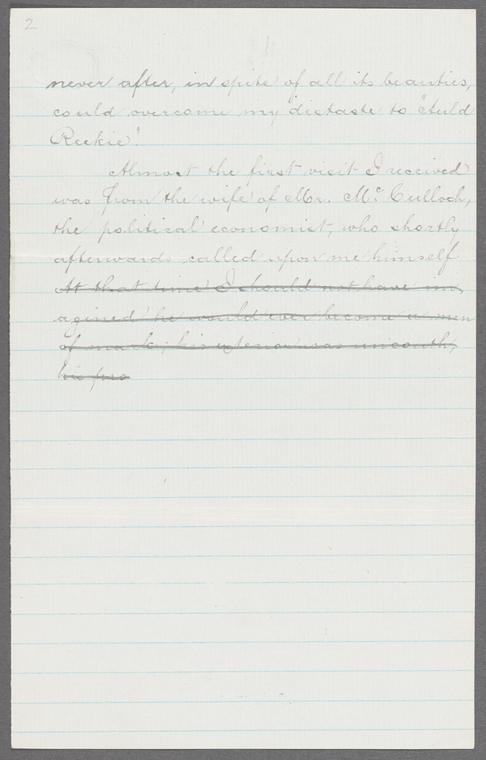 2
never after, in spite of all its beauties,
could overcome my distaste to "Auld
Reekie".
Almost the first visit I received
was from the wife of Mr. McCulloch,
the political economist, who shortly
afterwards called upon me himself
At that time I should not have im
agined he would ever become a man
of mark; his exterior was uncouth,
his pro